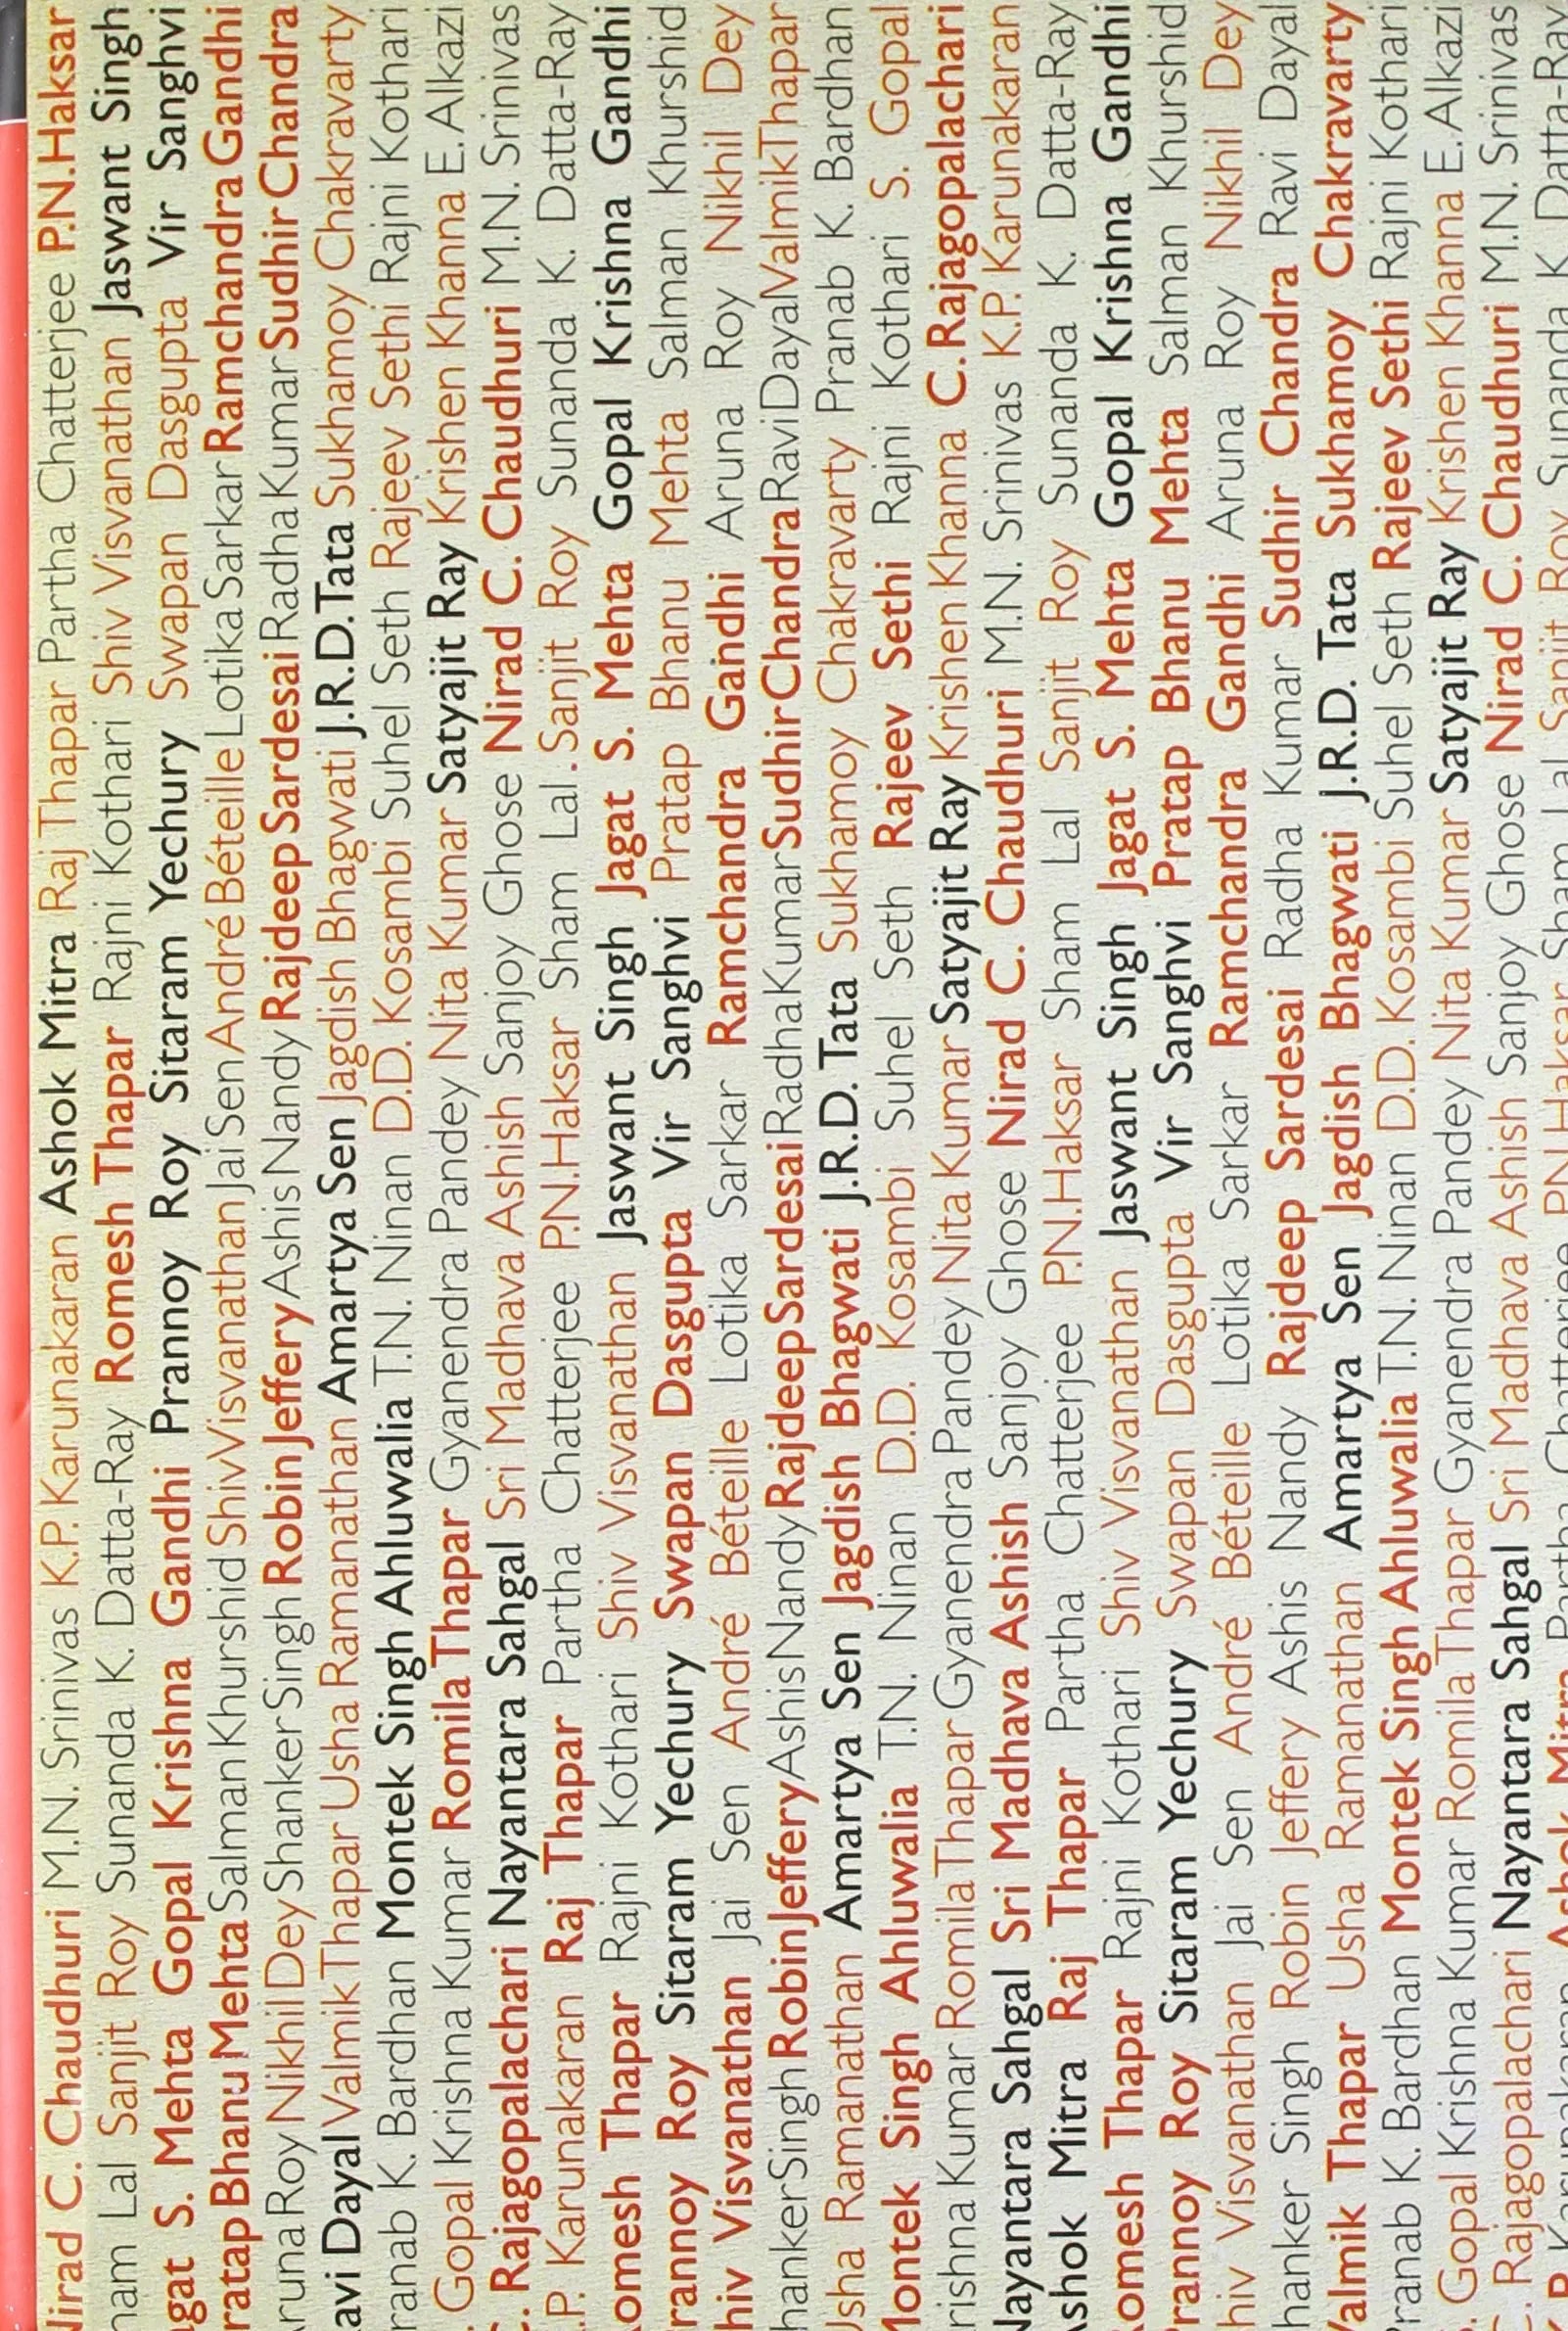 Nirad C. Chaudhuri M.N. Srinivas K.P. Karunakaran Ashok Mitra Raj Thapar Partha Chatterjee P.N.Haksar
Lal Sanjit Roy Sunanda K. Datta-Ray Romesh Thapar Rajni Kothari Shiv Visvanathan Jaswant Singh
S. Mehta Gopal Krishna Gandhi Prannoy Roy Sitaram Yechury Swapan Dasgupta Vir Sanghvi
Pratap Bhanu Mehta Salman Khurshid Shiv Visvanathan Jai Sen André Béteille Lotika Sarkar Ramchandra Gandhi
Aruna Roy Nikhil Dey Shanker Singh Robin Jeffery Ashis Nandy Rajdeep Sardesai Radha Kumar Sudhir Chandra
Dayal Valmik Thapar Usha Ramanathan Amartya Sen Jagdish Bhagwati J.R.D.Tata Sukhamoy Chakravarty
K. Bardhan Montek Singh Ahluwalia T.N. Ninan D.D. Kosambi Suhel Seth Rajeev Sethi Rajni Kothari
Gopal Krishna Kumar Romila Thapar Gyanendra Pandey Nita Kumar Satyajit Ray Krishen Khanna E.Alkazi
C. Rajagopalachari Nayantara Sahgal Sri Madhava Ashish Sanjoy Ghose Nirad C. Chaudhuri M.N. Srinivas
K.P. Karunakaran Raj Thapar Partha Chatterjee P.N.Haksar Sham Lal. Sanjit Roy Sunanda K. Datta-Ray
Romesh Thapar Rajni Kothari Shiv Visvanathan Jaswant Singh Jagat S. Mehta Gopal Krishna Gandhi
Prannoy Roy Sitaram Yechury Swapan Dasgupta Vir Sanghvi Pratap Bhanu Mehta Salman Khurshid
Shiv Visvanathan Jai Sen André Béteille Lotika Sarkar Ramchandra Gandhi Aruna Roy Nikhil Dey
Shanker Singh Robin Jeffery Ashis Nandy Rajdeep Sardesai Radha Kumar Sudhir Chandra Ravi Dayal Valmik Thapar
Usha Ramanathan Amartya Sen Jagdish Bhagwati J.R.D. Tata Sukhamoy Chakravarty Pranab K. Bardhan
Montek Singh Ahluwalia T.N. Ninan D.D. Kosambi Suhel Seth Rajeev Sethi Rajni Kothari S. Gopal
Krishna Kumar Romila Thapar Gyanendra Pandey Nita Kumar Satyajit Ray Krishen Khanna C. Rajagopalachari
Nayantara Sahgal Sri Madhava Ashish Sanjoy Ghose Nirad C. Chaudhuri M.N. Srinivas K.P. Karunakaran
Ashok Mitra Raj Thapar Partha Chatterjee P.N.Haksar Sham Lal Sanjit Roy Sunanda K. Datta-Ray
Romesh Thapar Rajni Kothari Shiv Visvanathan Jaswant Singh Jagat S. Mehta Gopal Krishna Gandhi
Prannoy Roy Sitaram Yechury Swapan Dasgupta Vir Sanghvi Pratap Bhanu Mehta Salman Khurshid
Shiv Visvanathan Jai Sen André Béteille Lotika Sarkar Ramchandra Gandhi Aruna Roy Nikhil Dey
Shanker Singh Robin Jeffery Ashis Nandy Rajdeep Sardesai Radha Kumar Sudhir Chandra Ravi Dayal
Valmik Thapar Usha Ramanathan Amartya Sen Jagdish Bhagwati J.R.D. Tata Sukhamoy Chakravarty
Pranab K. Bardhan Montek Singh Ahluwalia T.N. Ninan D.D. Kosambi Suhel Seth Rajeev Sethi Rajni Kothari
S. Gopal Krishna Kumar Romila Thapar Gyanendra Pandey Nita Kumar Satyajit Ray Krishen Khanna E.Alkazi
C. Rajagopalachari Nayantara Sahgal Sri Madhava Ashish Sanjoy Ghose Nirad C. Chaudhuri M.N. Srinivas
K.P. Karunakaran Ashok Mitra Partha Chatterjee P.N.Haksar Sham Lal Sanjit Roy Sunanda K. Datta-Ray